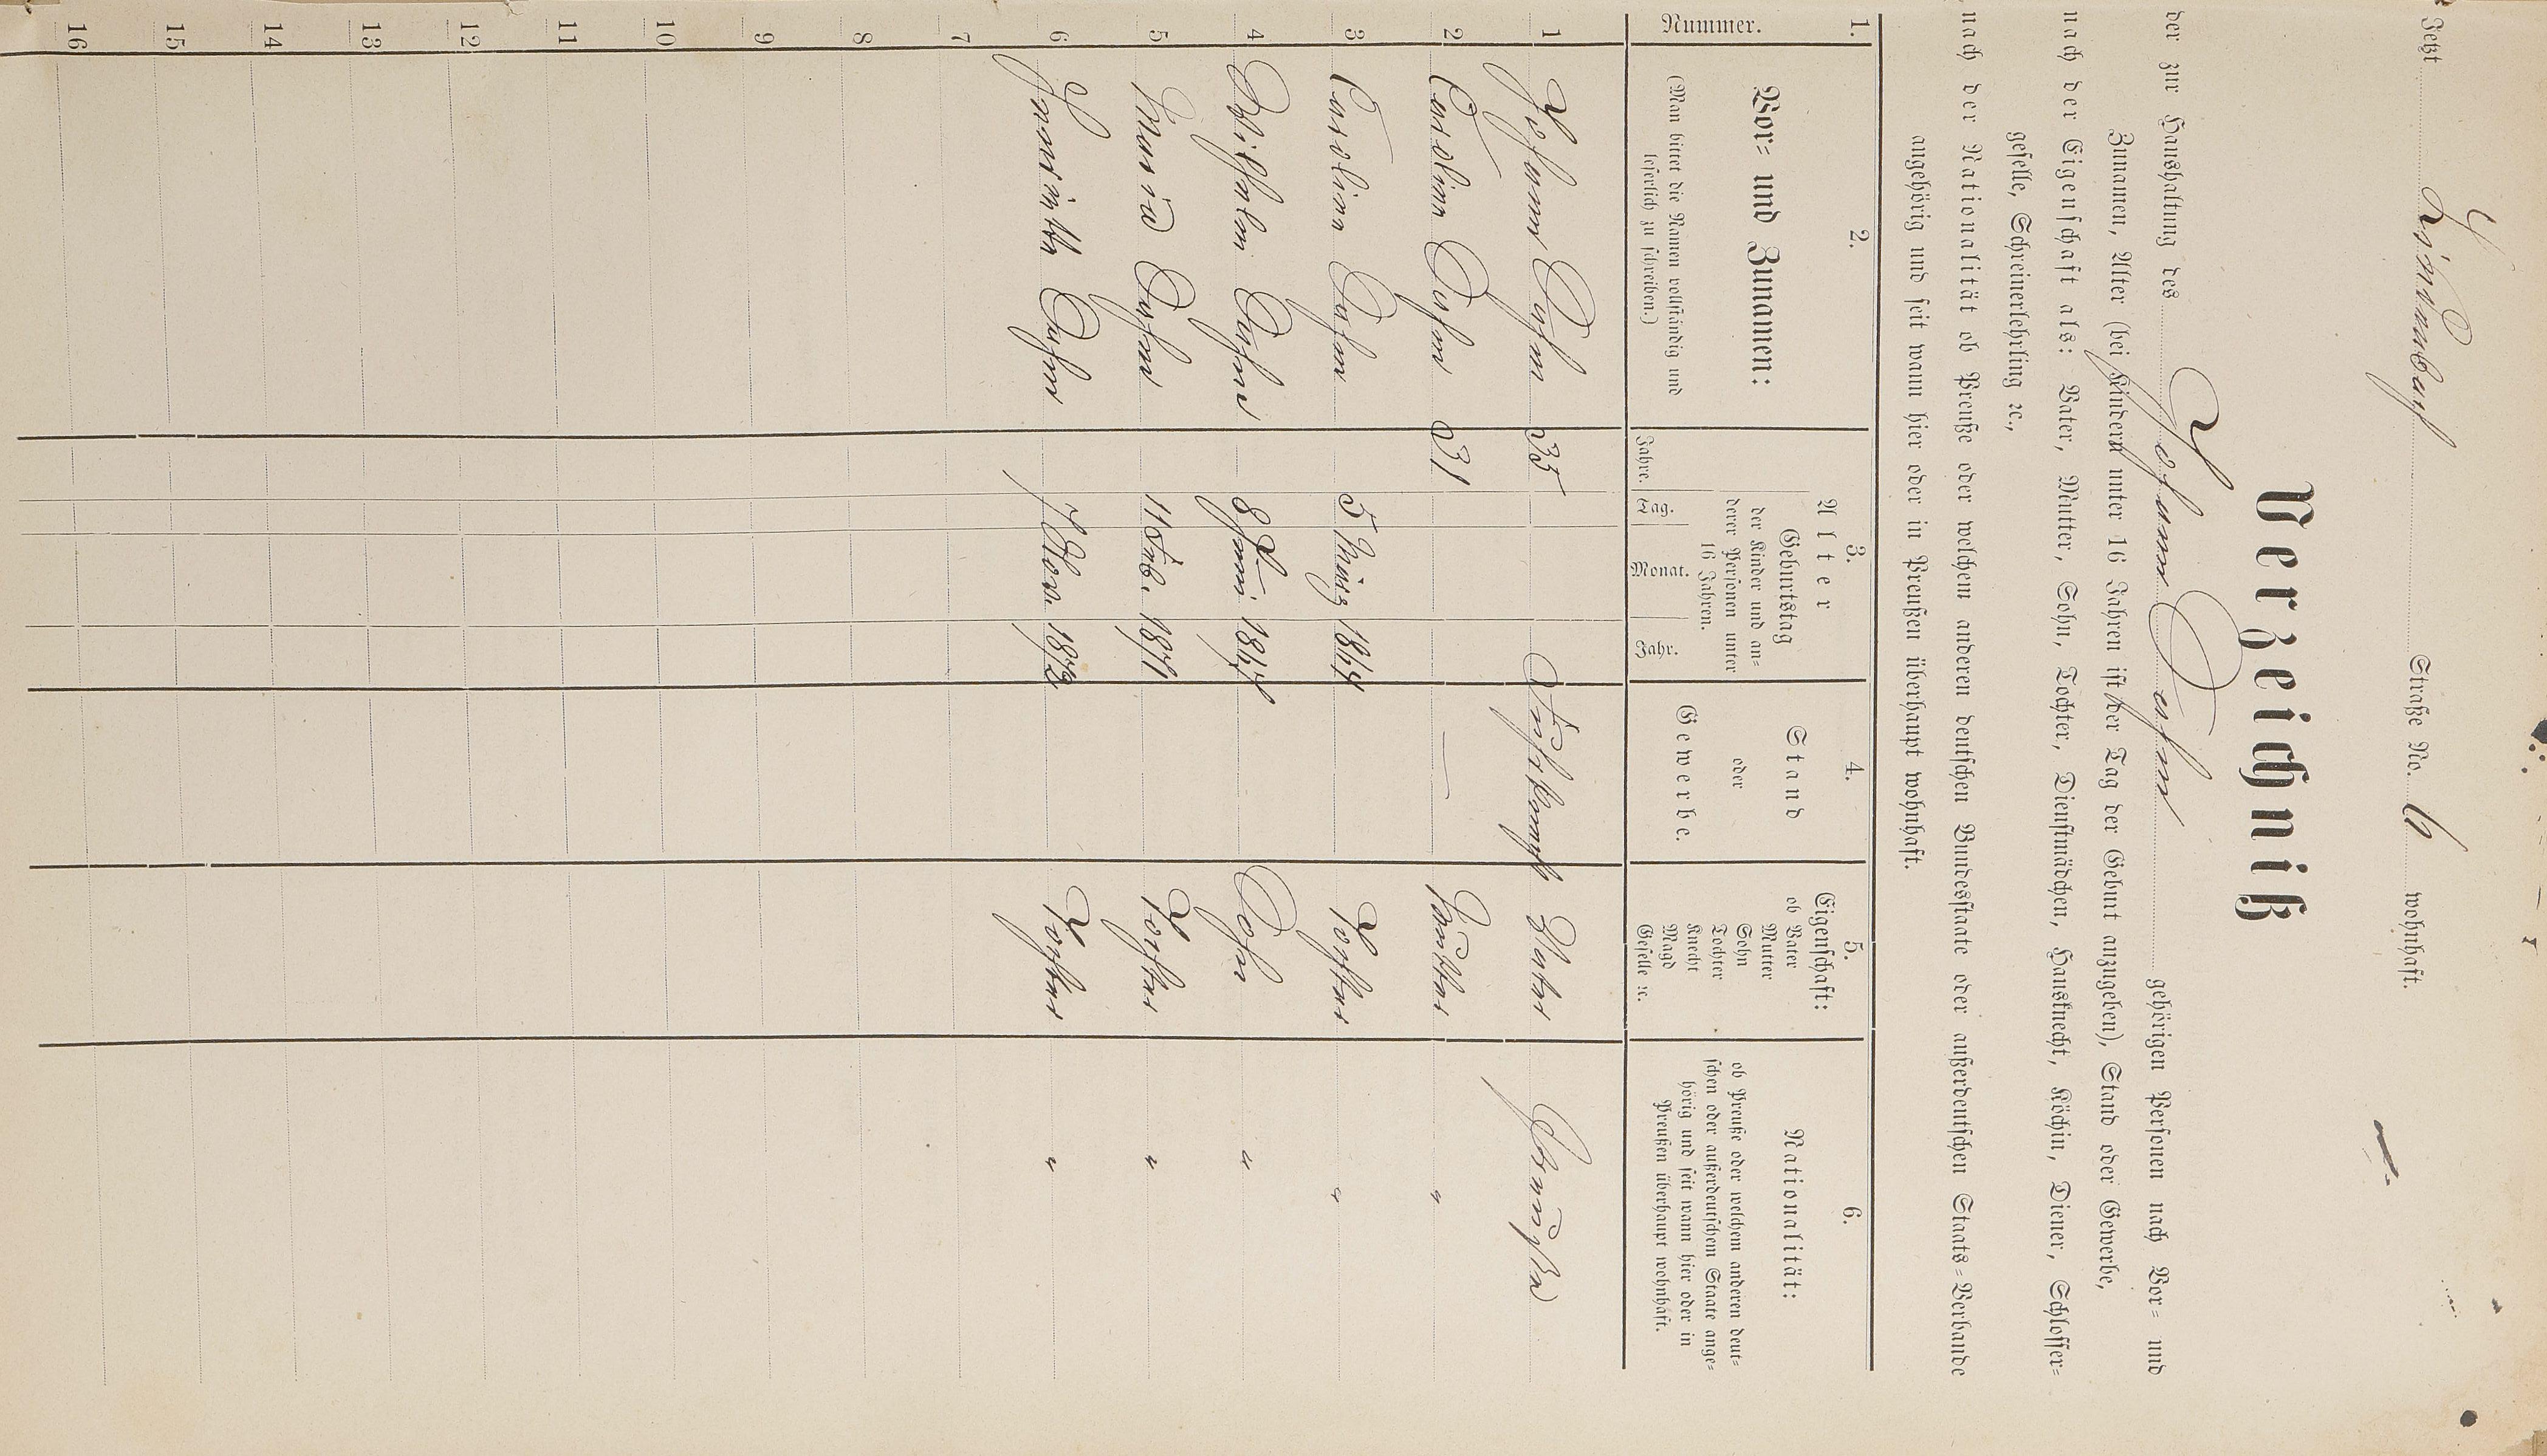 Jetzt Zimmendorf Straße No. 6 wohnhaft.
Verzeichniß
der zur Haushaltung des Johann Dehn gehörigen Personen nach Vor= und
Zunamen, Alter (bei Kindern unter 16 Jahren ist der Tag der Geburt anzugeben), Stand oder Gewerbe,
nach der Eigenschaft als: Vater, Mutter, Sohn, Tochter, Dienstmädchen, Hausknecht, Köchin, Diener, Schlosser=
geselle, Schreinerlehrling ꝛc.,
nach der Nationalität ob Preuße oder welchem anderen deutschen Bundesstaate oder außerdeutschen Staats=Verbande
angehörig und seit wann hier oder in Preußen überhaupt wohnhaft.
1. 2. 3. 4. 5. 6.
Nummer.
Vor= und Zunamen:
(Man bittet die Namen vollständig und
leserlich zu schreiben.)
Alter
Geburtstag
der Kinder und an=
derer Personen unter
16 Jahren.
Jahre. Tag. Monat. Jahr.
Stand
oder
Gewerbe.
Eigenschaft:
ob Vater
Mutter
Sohn
Tochter
Knecht
Magd
Geselle ꝛc.
Nationalität:
ob Preuße oder welchem anderen deut=
schen oder außerdeutschem Staate ange=
hörig und seit wann hier oder in
Preußen überhaupt wohnhaft.
1 Johann Dehn 35 Vater Preuße
2 Caroline Dehn 31 — Mutter "
3 Caroline Dehn 5 März 1864 Tochter "
4 Wilhelm Dehn 8 Juni. 1867 Sohn "
5 Maria Dehn 11 Feb. 1871 Tochter "
6 Henriette Dehn 7 Nov. 1873 Tochter "
7
8
9
10
11
12
13
14
15
16